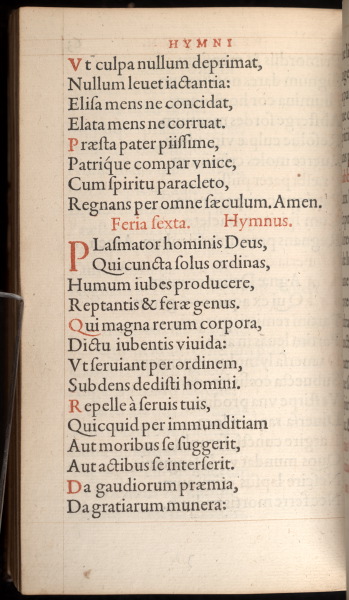 HYMNI
Vt culpa nullum deprimat,
Nullum leuet iactantia:
Eliſa mens ne concidat,
Elata mens ne corruat.
Præſta pater piiſſime,
Patriq́ue compar vnice,
Cum ſpiritu paracleto,
Regnans per omne ſæculum. Amen.
Feria ſexta. Hymnus.
PLaſmator hominis Deus,
Qui cuncta ſolus ordinas,
Humum iubes producere,
Reptantis & feræ genus.
Qui magna rerum corpora,
Dictu iubentis viuida:
Vt ſeruiant per ordinem,
Subdens dediſti homini.
Repelle à ſeruis tuis,
Quicquid per immunditiam
Aut moribus ſe ſuggerit,
Aut actibus ſe interſerit.
Da gaudiorum præmia,
Da gratiarum munera: